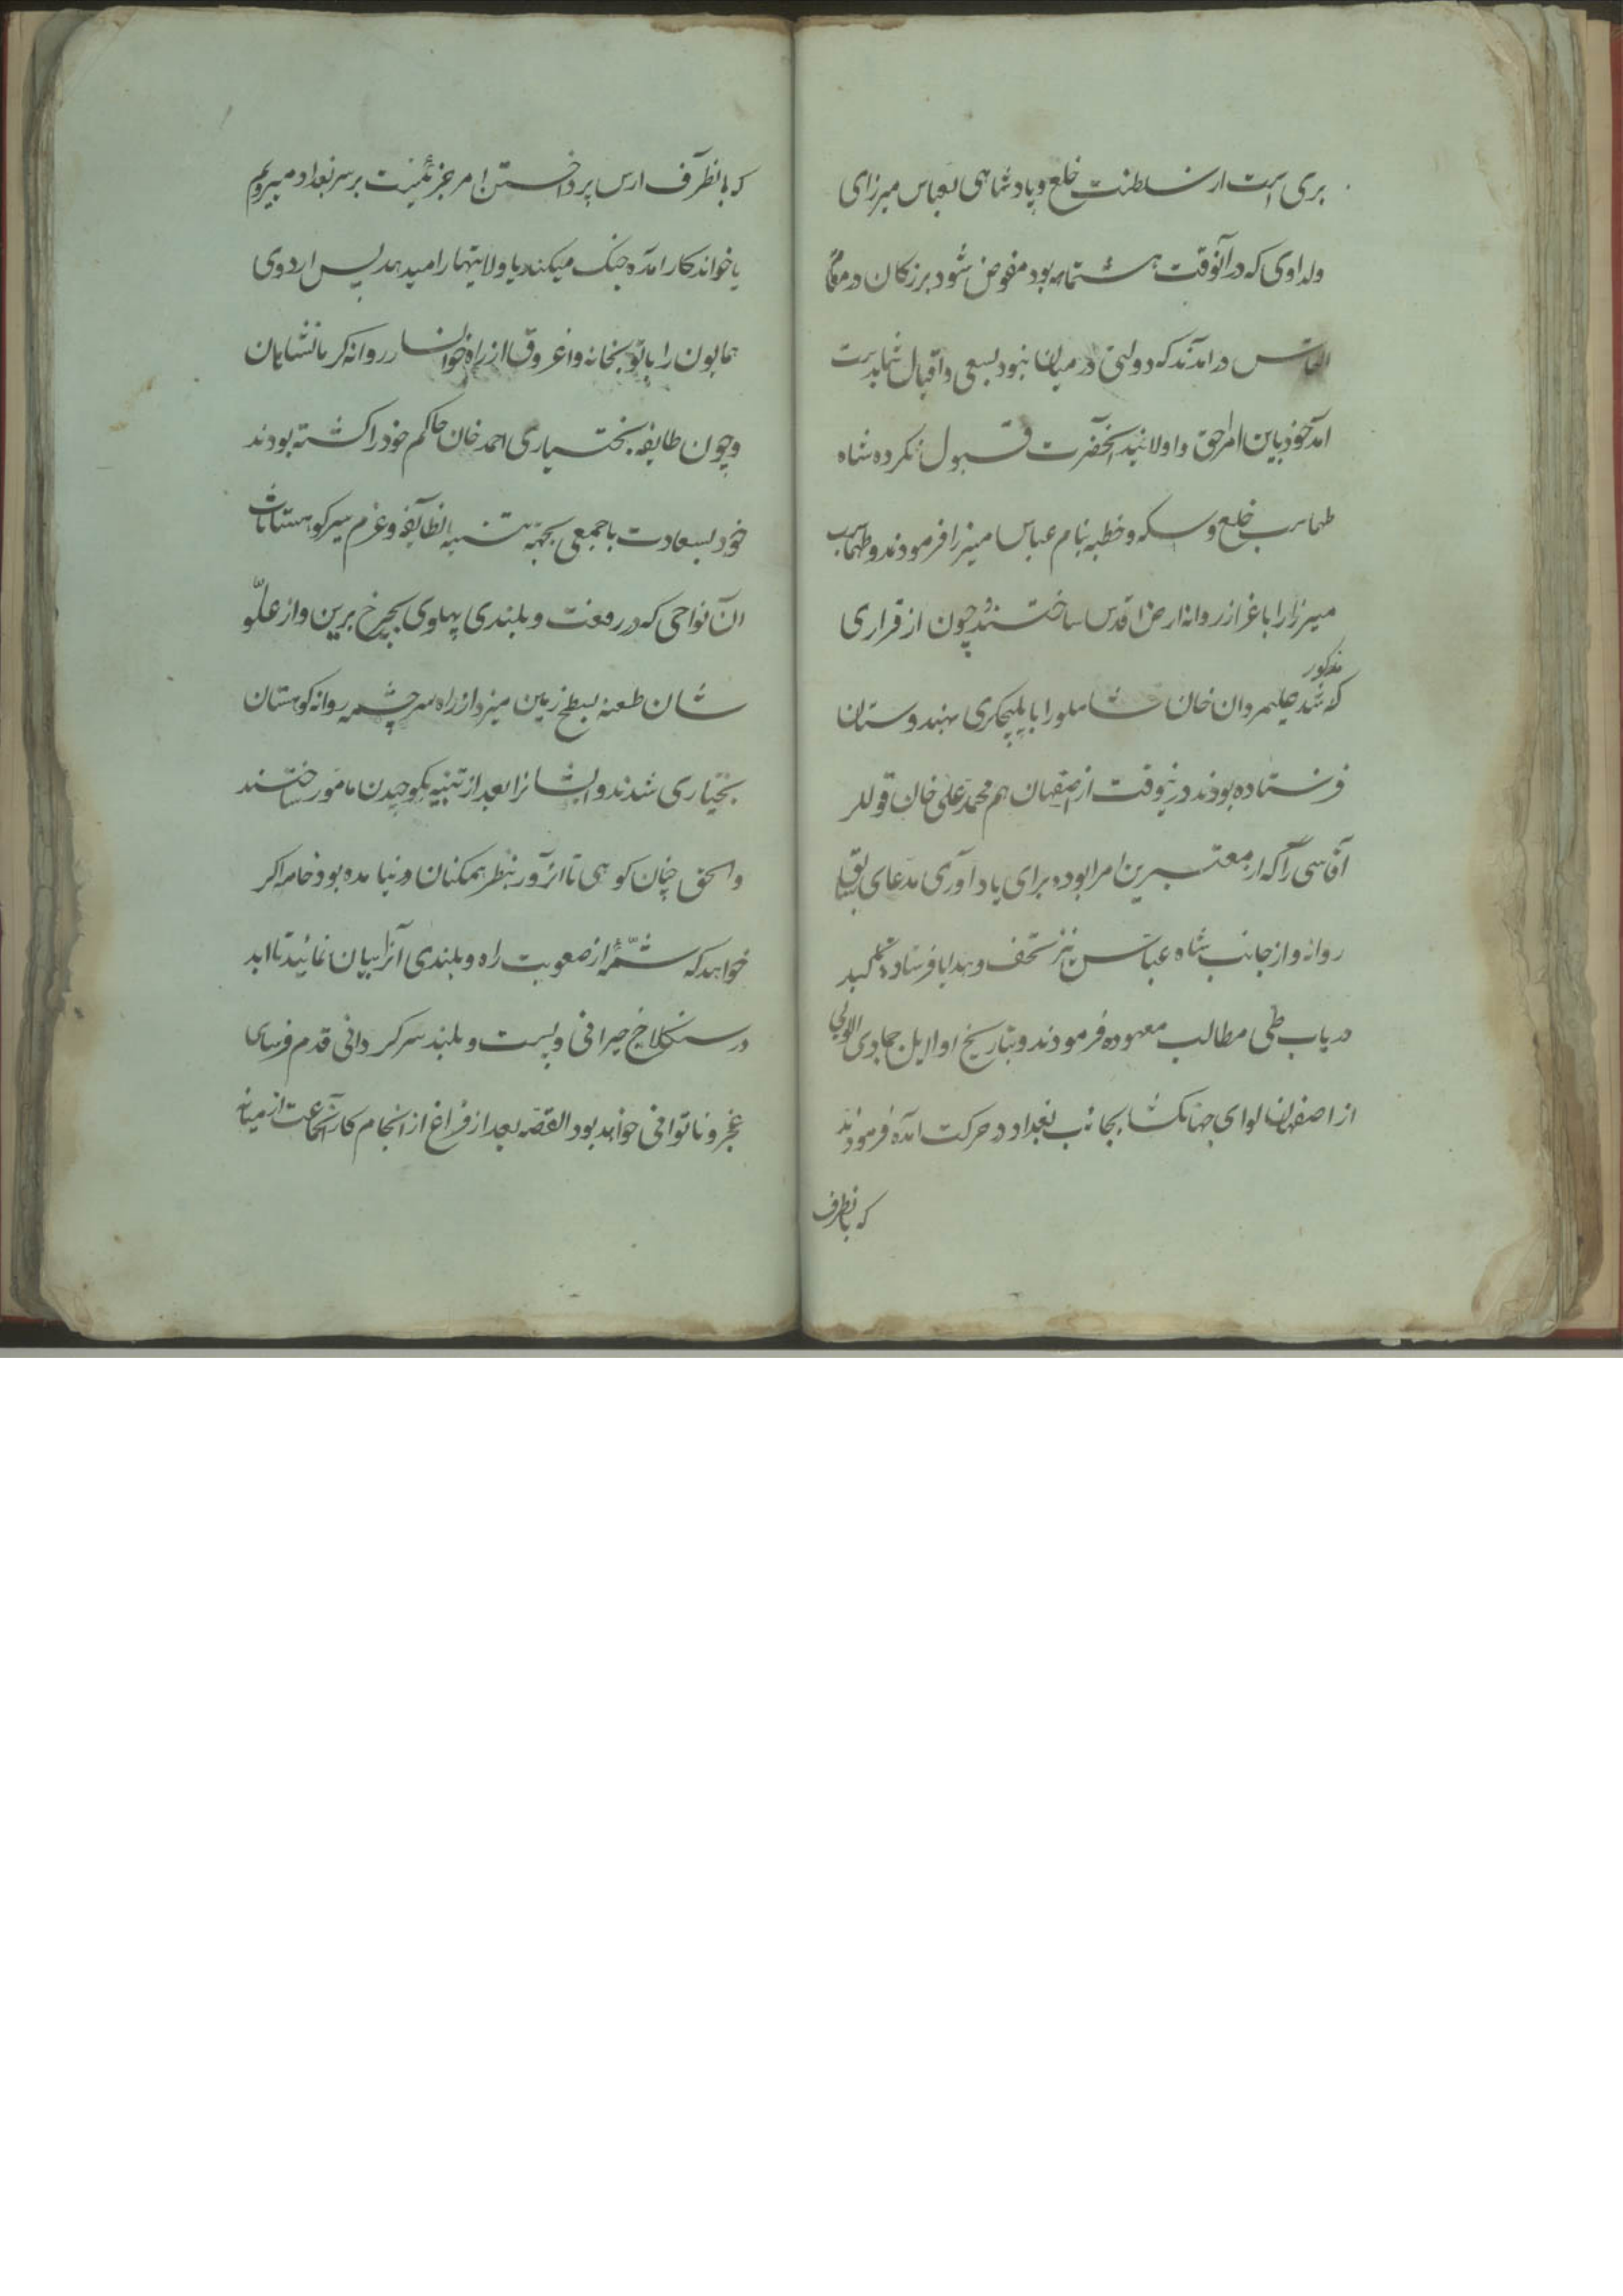 بری است از سلطنت خلع و پادشاهی بعباس میرزای
ولد اوی که در آنوقت هشتماهه بود مفوض شود بزرکان در مقام
التماس در امدند که دولتی در میان نبود بسعی و اقبال شما بدست
امد خود باین امر احق و اولائید آنحضرت قبول نکرده شاه
طهماسب خلع و سکه و خطبه بنام عباس میرزا فرمودند و طهماسب
میرزا را باغزاز روانه ارض اقدس ساختند و چون از قراری
که مذکور شد علیمردان خان شاملو را بایلچیکری بهندوستان
فرستاده بودند درینوقت از اصفهان هم محمد علی خان قوللر
آقاسی را که از معتبرین امرا بوده برای یاد آوری مدعای سابق
روانه و از جانب شاه عباس نیز تحف و هدایا فرستاده تاکید
در باب طی مطالب معهوده فرمودند و بتاریخ اوایل جمادی الاولی
از اصفهان لوای جهانکشا بجانب بغداد در حرکت امده فرمودند
که بانطرف
که بانطرف ارس پرداختن امر جزئیست بر سر بغداد میرویم
یا خواندکار امده جنک میکند یا ولایتها را میدهد پس اردوی
همایون را با توپخانه و اغروق از راه خوانسار روانه کرمانشاهان
و چون طایفه بختیاری احمد خان حاکم خود را کشته بودند
خود بسعادت با جمعی بجهة تنبیه انطایفه و عزم سیر کوهستانات
ان نواحی که در رفعت و بلندی پهلوی بچرخ برین و از علّو
شان طعنه بسطح زمین میزد از راه سرچشمه روانه کوهستان
بختیاری شدند و ایشانرا بعد از تنبیه بکوچیدن مامور ساختند
والحق چنان کوهی تا انروز بنظر همکنان در نیامده بود خامه اکر
خواهد که شمّهٔ از صعوبت راه و بلندی آنرا بیان نماید تا ابد
در سنکلاخ حیرانی و پست و بلند سرکردانی قدم فرسای
عجز و ناتوانی خواهد بود القصه بعد از فراغ از انجام کار آنجماعت از میانه